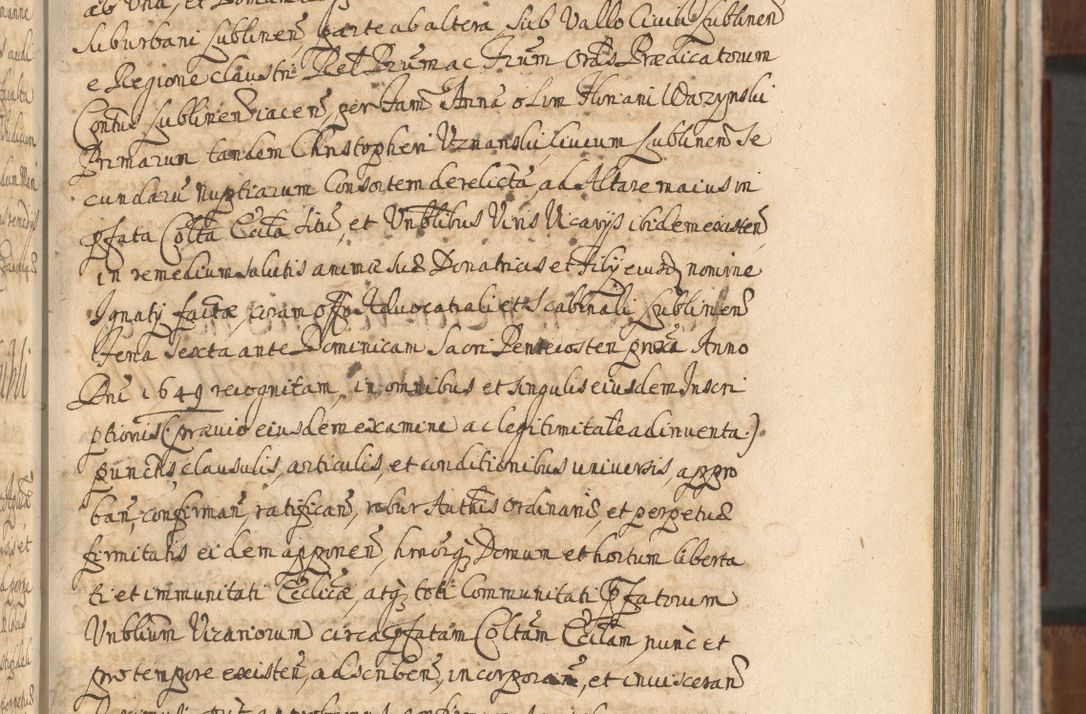 ab Una, et
Suburbani Lublinen̄, parte ab altera, Sub Vallo Civili Lublinen̄
e Regione claustri Rel̄ Prum̄ ac Frum̄ Ord̄is Prædicatorum
Con̄tus Lublinen̄ iacen̄, per fam̄ Annā olim Floriani Wazynski
Primarum tandem Christopheri Uznanski, Civium Lublinen̄ Se
cundarū nuptiarum Consortem derelictā, ad Altare maius in
p̄fata Coll̄ta Eccl̄a situ, et Vn̄blibus Viris Vicarijs ibidem existen̄
in remedium salutis animæ suæ Donatricis et Filij eiusd̄ nomine
Ignatij factæ, coram off̄o Advocatiali et Scabinali Lublinen̄
Feria Sexta ante Dominicam Sacri Pentecosten prox̄a Anno
Dn̄i 1649 recognitam, in omnibus et singulis eiusdem Inscri
ptionis (prævio eiusdem examine ac legitimitate adinventa)
punctis, clausulis, articulis, et conditionibus universis, appro
ban̄, confirman̄, ratifican̄, robur Auth̄tis Ordinariæ, et perpetuæ
firmitatis eidem apponen̄, hm̄ōrq̄ Domum et hortum liberta
ti et immunitati Eccl̄icæ, atq̄ toti Communitati P̄fatorum
Vn̄blium Vicariorum circa p̄fatam Coll̄tam Eccl̄am, nunc et
pro tempore existen̄, adscriben̄, incorporan̄, et invisceran̄